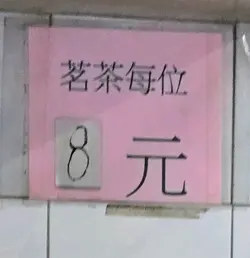 茗茶每位
8元